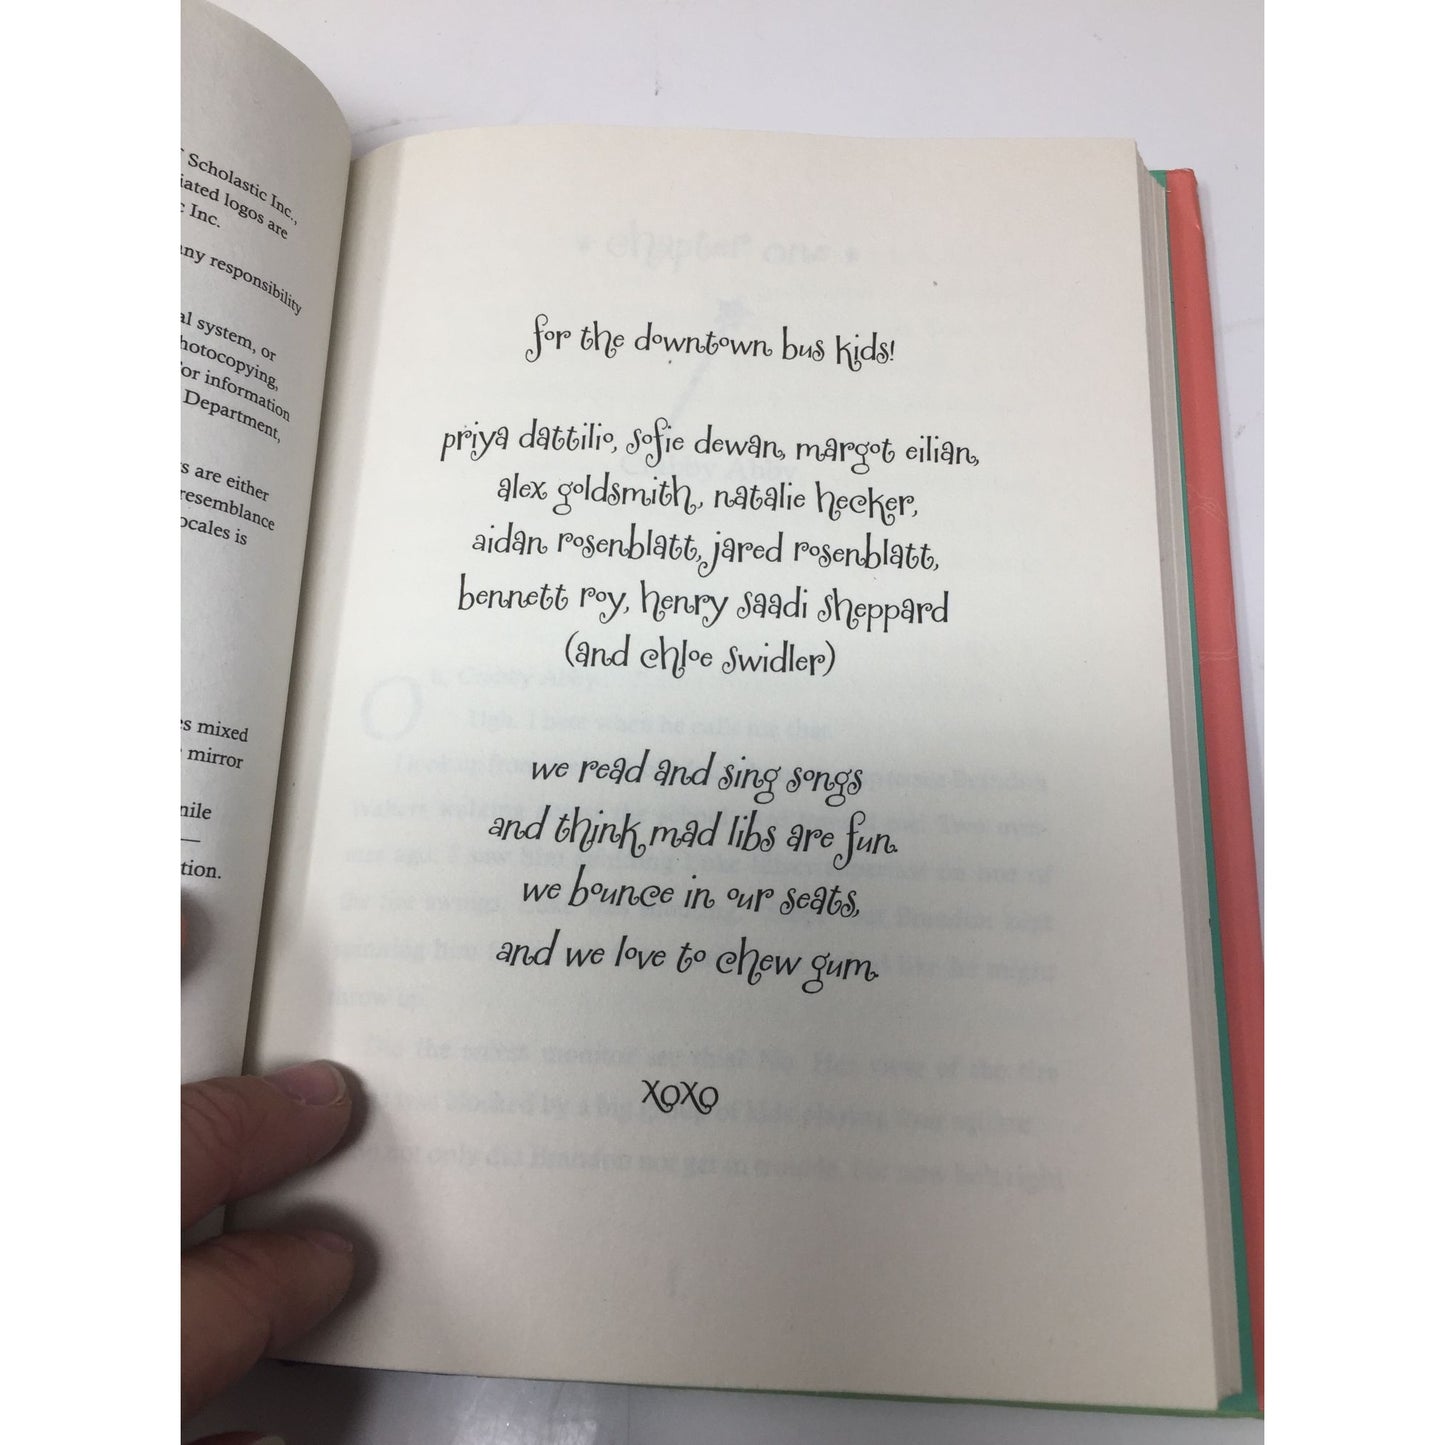 Scholastic Inc.,
logos are
Inc.
responsibility
system, or
for information
Department,
are either
resemblance
is
mixed
mirror
for the downtown bus kids!
priya dattilio, sofie dewan, margot eilian,
alex goldsmith, natalie hecker,
aidan rosenblatt, jared rosenblatt,
bennett roy, henry saadi sheppard
(and chloe swidler)
we read and sing songs
and think mad libs are fun.
we bounce in our seats,
and we love to chew gum.
xoxo